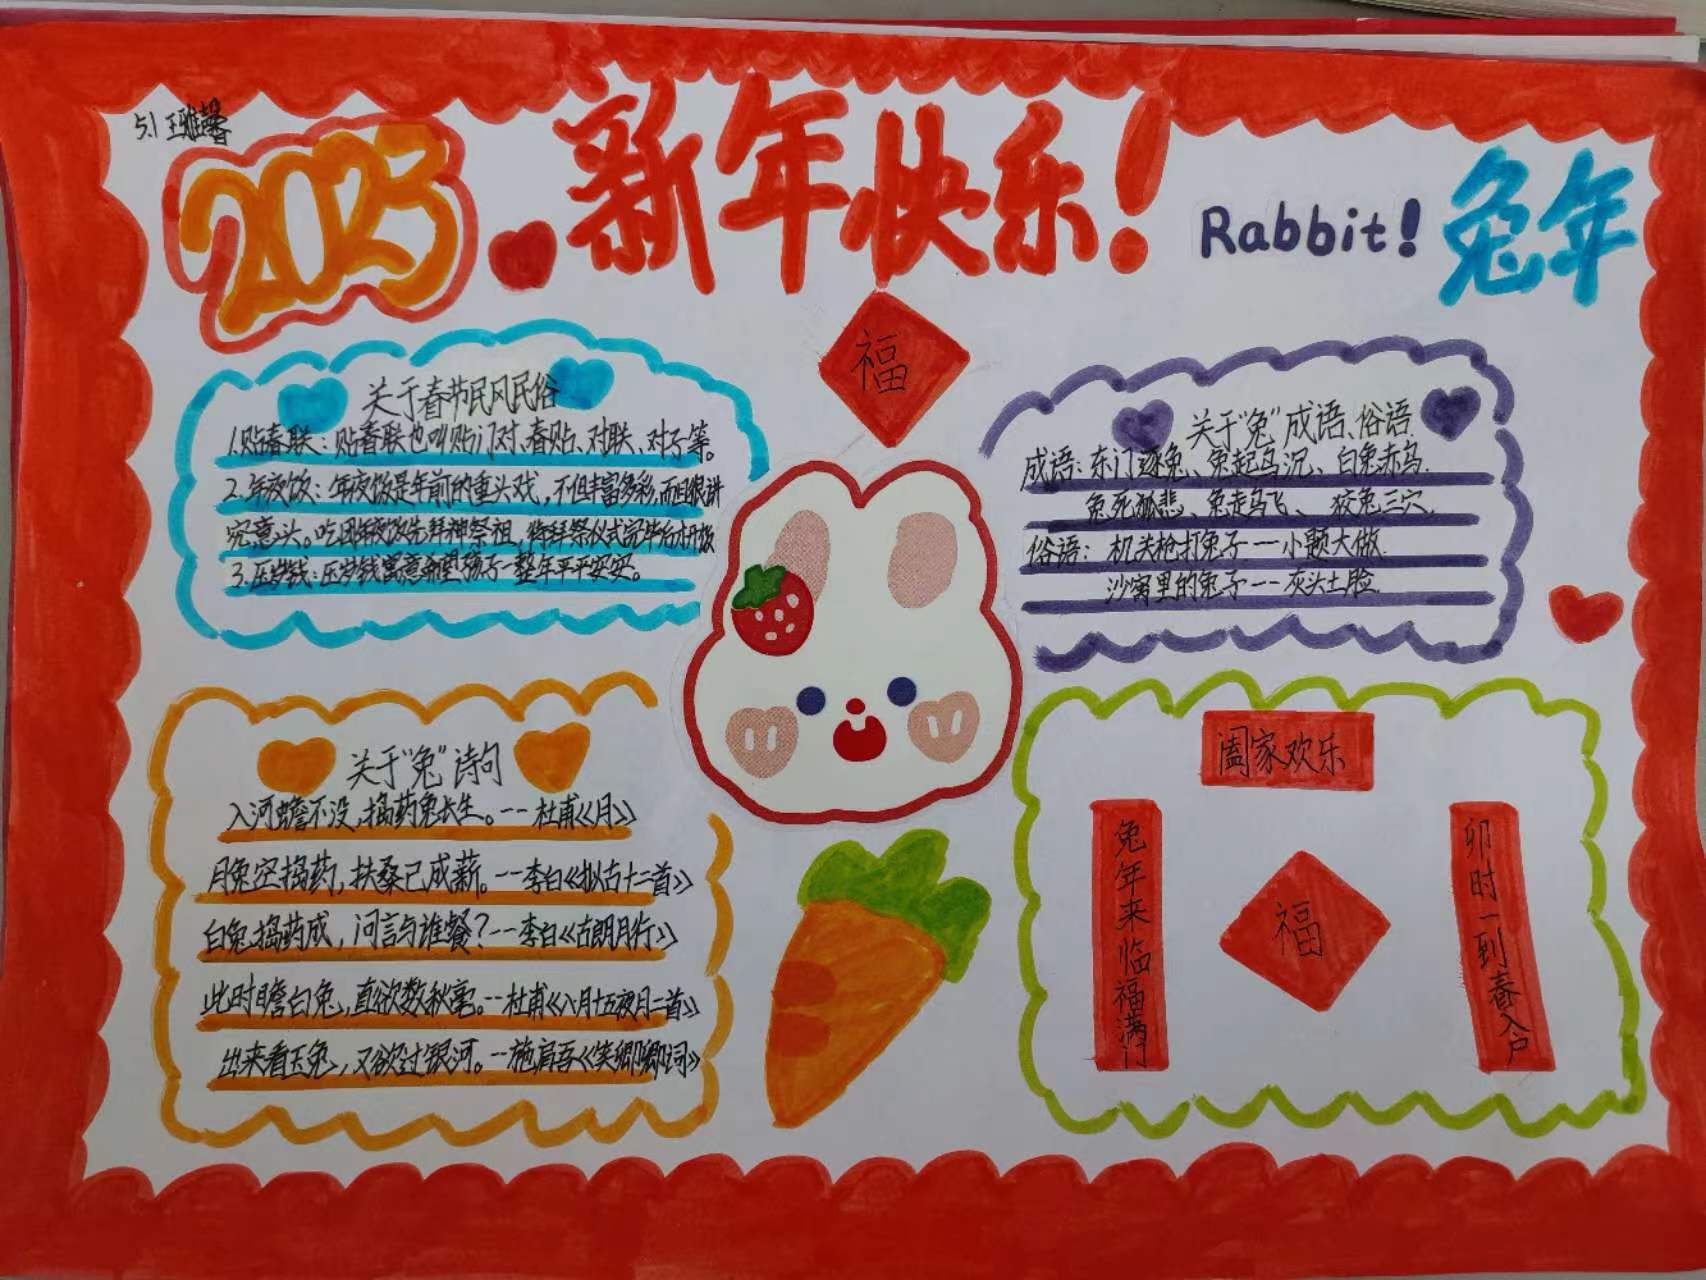 5.1 王雅馨
2023
新年快乐!
Rabbit!
兔年
福
关于春节民风民俗
1.贴春联:贴春联也叫贴门对、春贴、对联、对子等。
2.年夜饭:年夜饭是年前的重头戏,不但丰富多彩,而且很讲
究意头。吃团年夜饭先拜神祭祖,待拜祭仪式完毕后才开饭
3.压岁钱:压岁钱寓意希望孩子一整年平平安安。
关于“兔”成语、俗语
成语:东门逐兔、兔起乌沉、白兔赤乌.
兔死狐悲、兔走乌飞、狡兔三穴.
俗语:机关枪打兔子---小题大做.
沙窝里的兔子---灰头土脸.
关于“兔”诗句
入河蟾不没,捣药兔长生。--杜甫《月》
月兔空捣药,扶桑已成薪。--李白《拟古十二首》
白兔捣药成,问言与谁餐?--李白《古朗月行》
此时瞻白兔,直欲数秋毫。--杜甫《八月十五夜月二首》
出来看玉兔,又欲过银河。--施肩吾《笑卿卿词》
阖家欢乐
兔年来临福满门
福
卯时一到春入户